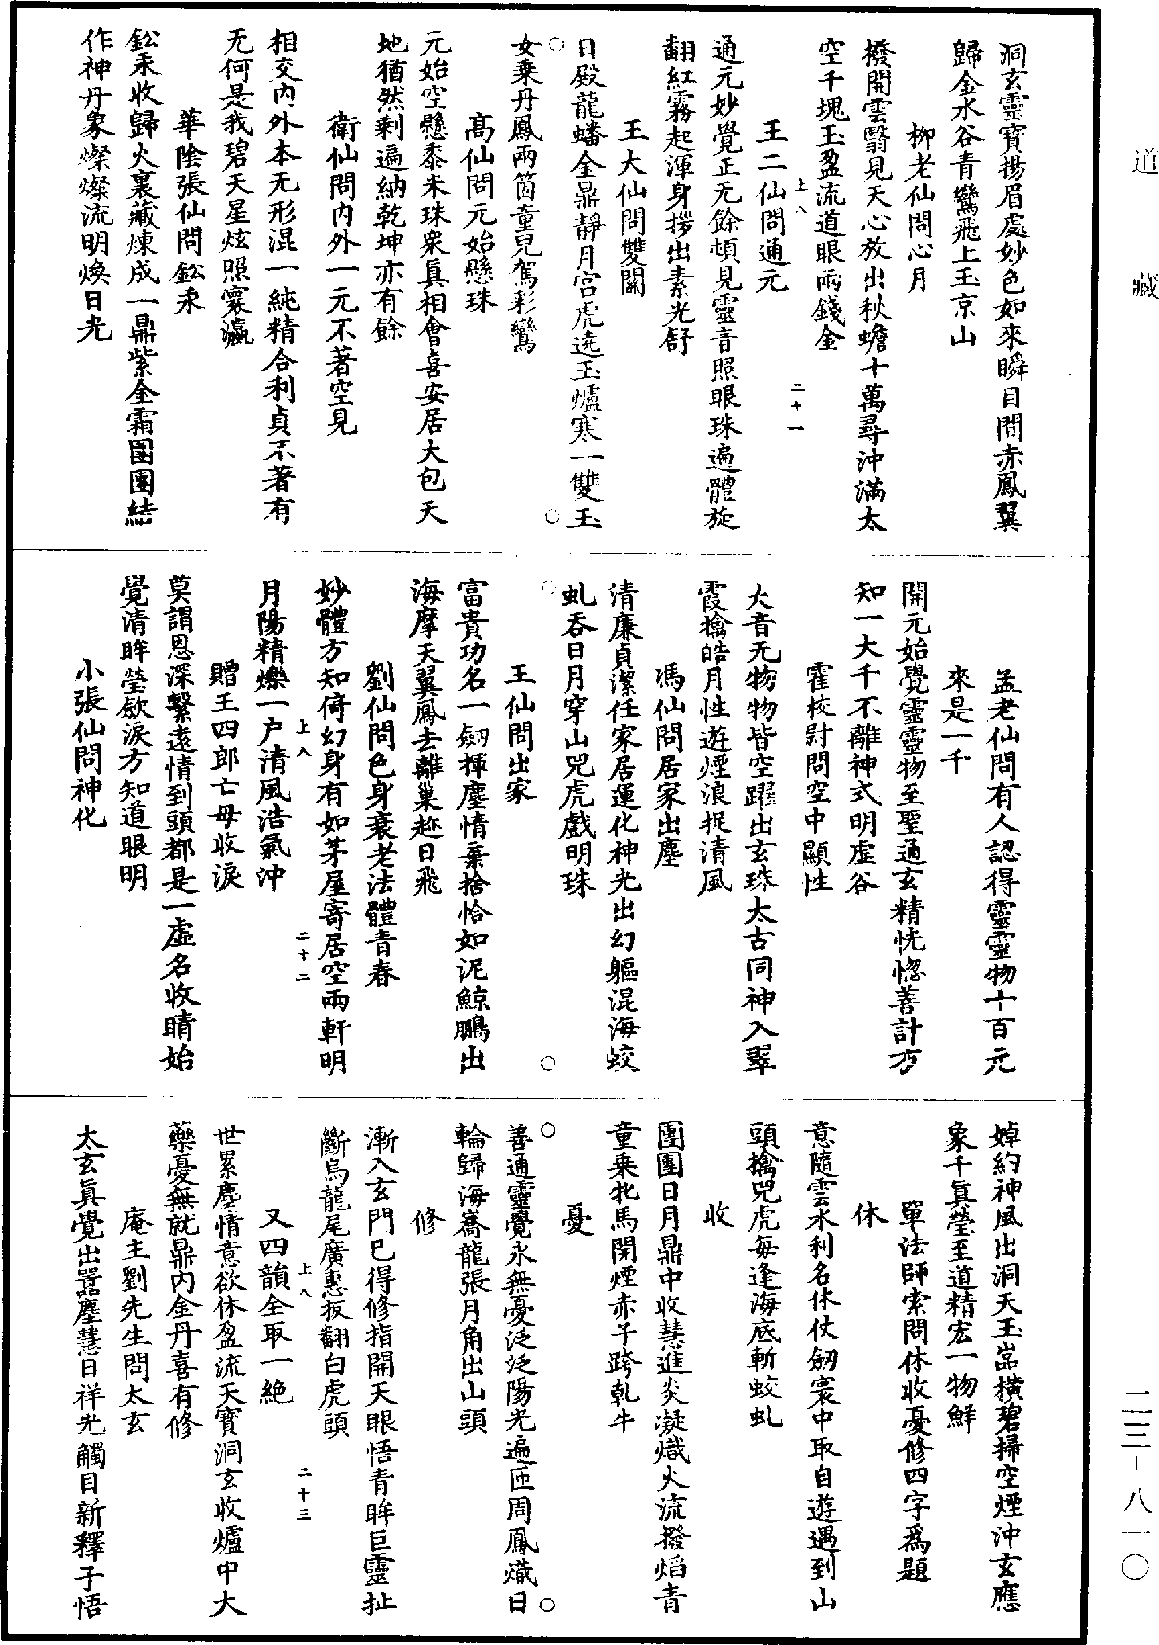 道藏
洞玄靈寶揚眉處妙色如來瞬目間赤鳳翼
歸金水谷青鸞飛上玉京山
柳老仙問心月
撥開雲翳見天心放出秋蟾十萬尋沖滿太
空千塊玉盈流道眼兩錢金
上八
二十一
王二仙問通元
通元妙覺正无餘頓見靈音照眼珠遍體旋
翻紅霧起渾身拶出素光舒
王大仙問雙關
日殿龍蟠金鼎靜月宮虎遶玉爐寒一雙玉
女乘丹鳳兩箇童兒駕彩鸞
高仙問元始懸珠
元始空懸黍米珠衆眞相會喜安居大包天
地猶然剩遍納乾坤亦有餘
衛仙問内外一元不著空見
相交内外本无形混一純精合利貞不著有
无何是我碧天星炫照寰瀛
華陰張仙問鈆汞
鈆汞收歸火裏藏煉成一鼎紫金霜團團結
作神丹象燦燦流明煥日光
孟老仙問有人認得靈靈物十百元
來是一千
開元始覺靈靈物至聖通玄精恍惚善計方
知一大千不離神式明虛谷
霍校尉問空中顯性
大音无物物皆空躍出玄珠太古同神入翠
霞擒皓月性遊煙浪捉清風
馮仙問居家出塵
清廉貞潔任家居運化神光出幻軀混海蛟
虬吞日月穿山兕虎戲明珠
王仙問出家
富貴功名一劒揮塵情棄捨恰如泥鯨鵬出
海摩天翼鳳去離巢趂日飛
劉仙問色身衰老法體青春
妙體方知倚幻身有如茅屋寄居空雨軒明
上八
二十二
月陽精爍一户清風浩氣沖
贈王四郎亡母收淚
莫謂恩深繫遠情到頭都是一虛名收睛始
覺清眸瑩歛淚方知道眼明
小張仙問神化
婥約神風出洞天玉崇橫碧掃空煙沖玄應
象千眞瑩至道精宏一物鮮
單法師索問休收憂修四字爲題
休
意隨雲水利名休仗劒寰中取自遊遇到山
頭擒兕虎每逢海底斬蛟虬
收
團團日月鼎中收慧進炎凝熾火流撥焰青
童乘牝馬開煙赤子跨乹牛
憂
善通靈覺永無憂泛泛陽光遍匝周鳳熾日
輪歸海嶠龍張月角出山頭
修
漸入玄門巳得修指開天眼悟青眸巨靈扯
斷烏龍尾廣惠扳翻白虎頭
上八
二十三
又四韻全取一絶
世累塵情意欲休盈流天寳洞玄收爐中大
藥憂無就鼎内金丹喜有修
庵主劉先生問太玄
太玄眞覺出嚣塵慧日祥光觸目新釋子悟
二三－八一〇